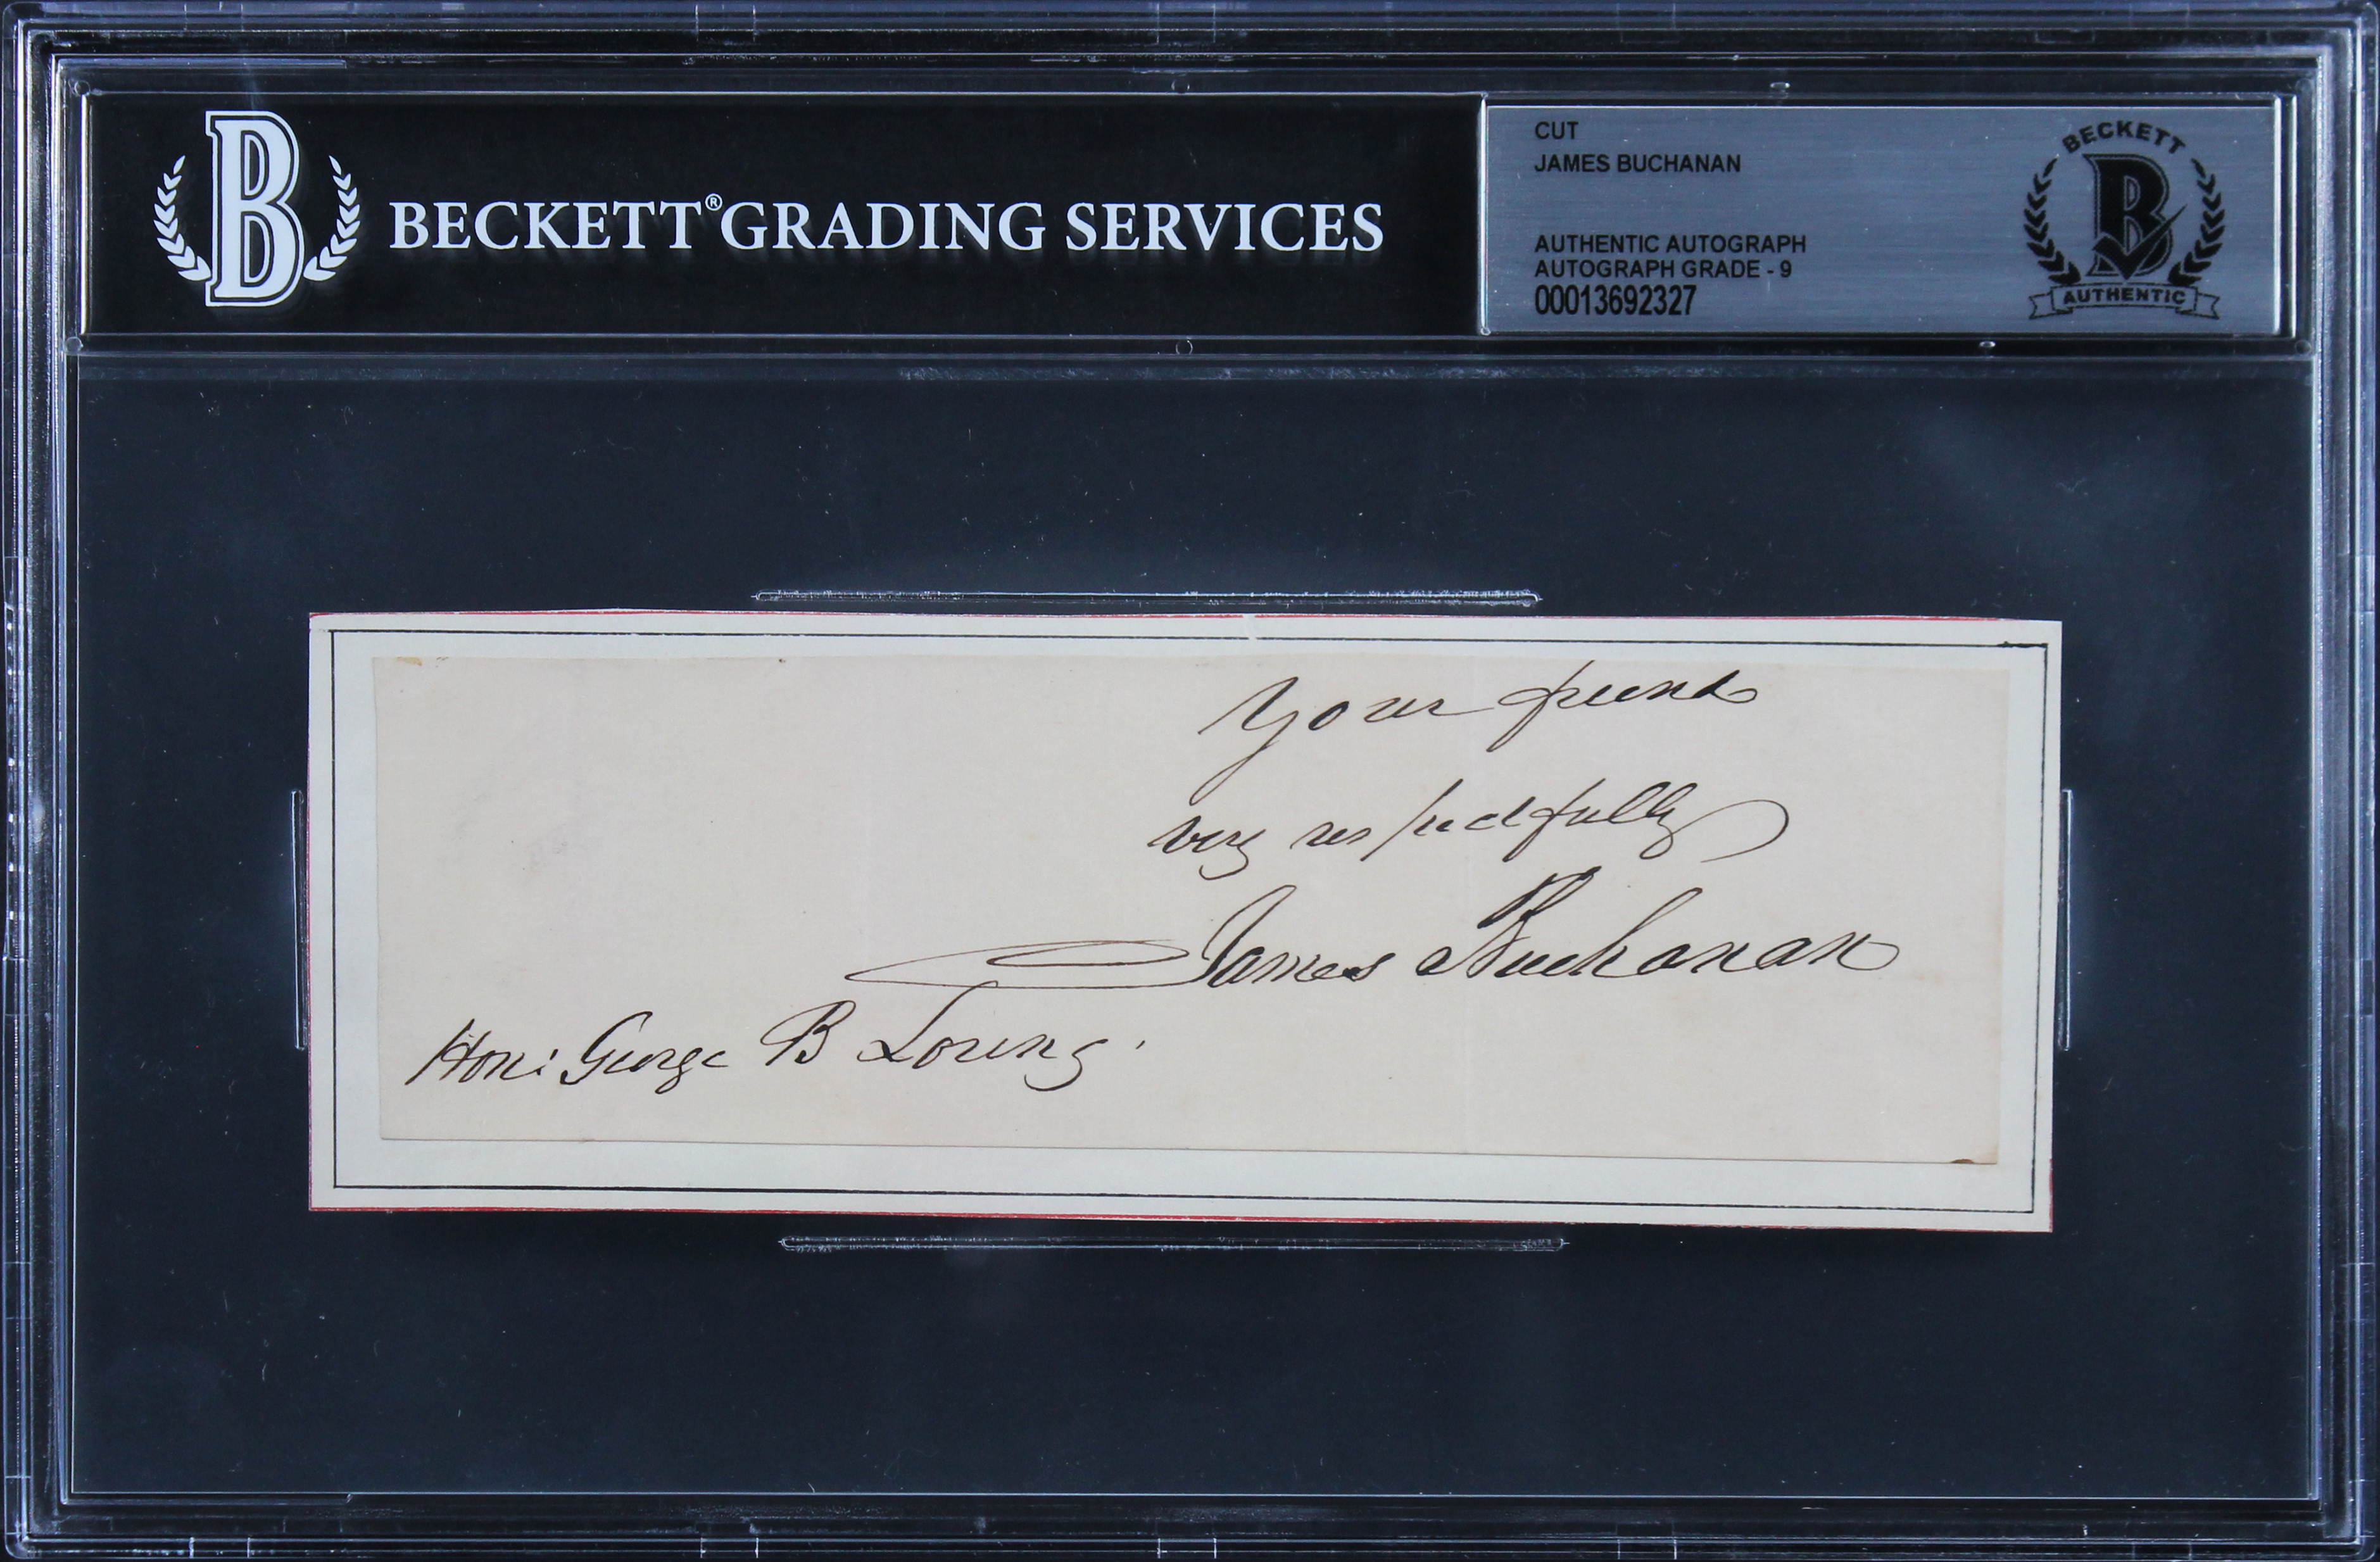 B BECKETT® GRADING SERVICES
CUT
JAMES BUCHANAN
AUTHENTIC AUTOGRAPH
AUTOGRAPH GRADE - 9
00013692327
BECKETT
B
AUTHENTIC
Your friend
very respectfully
James Buchanan
Hon: George B Loring.